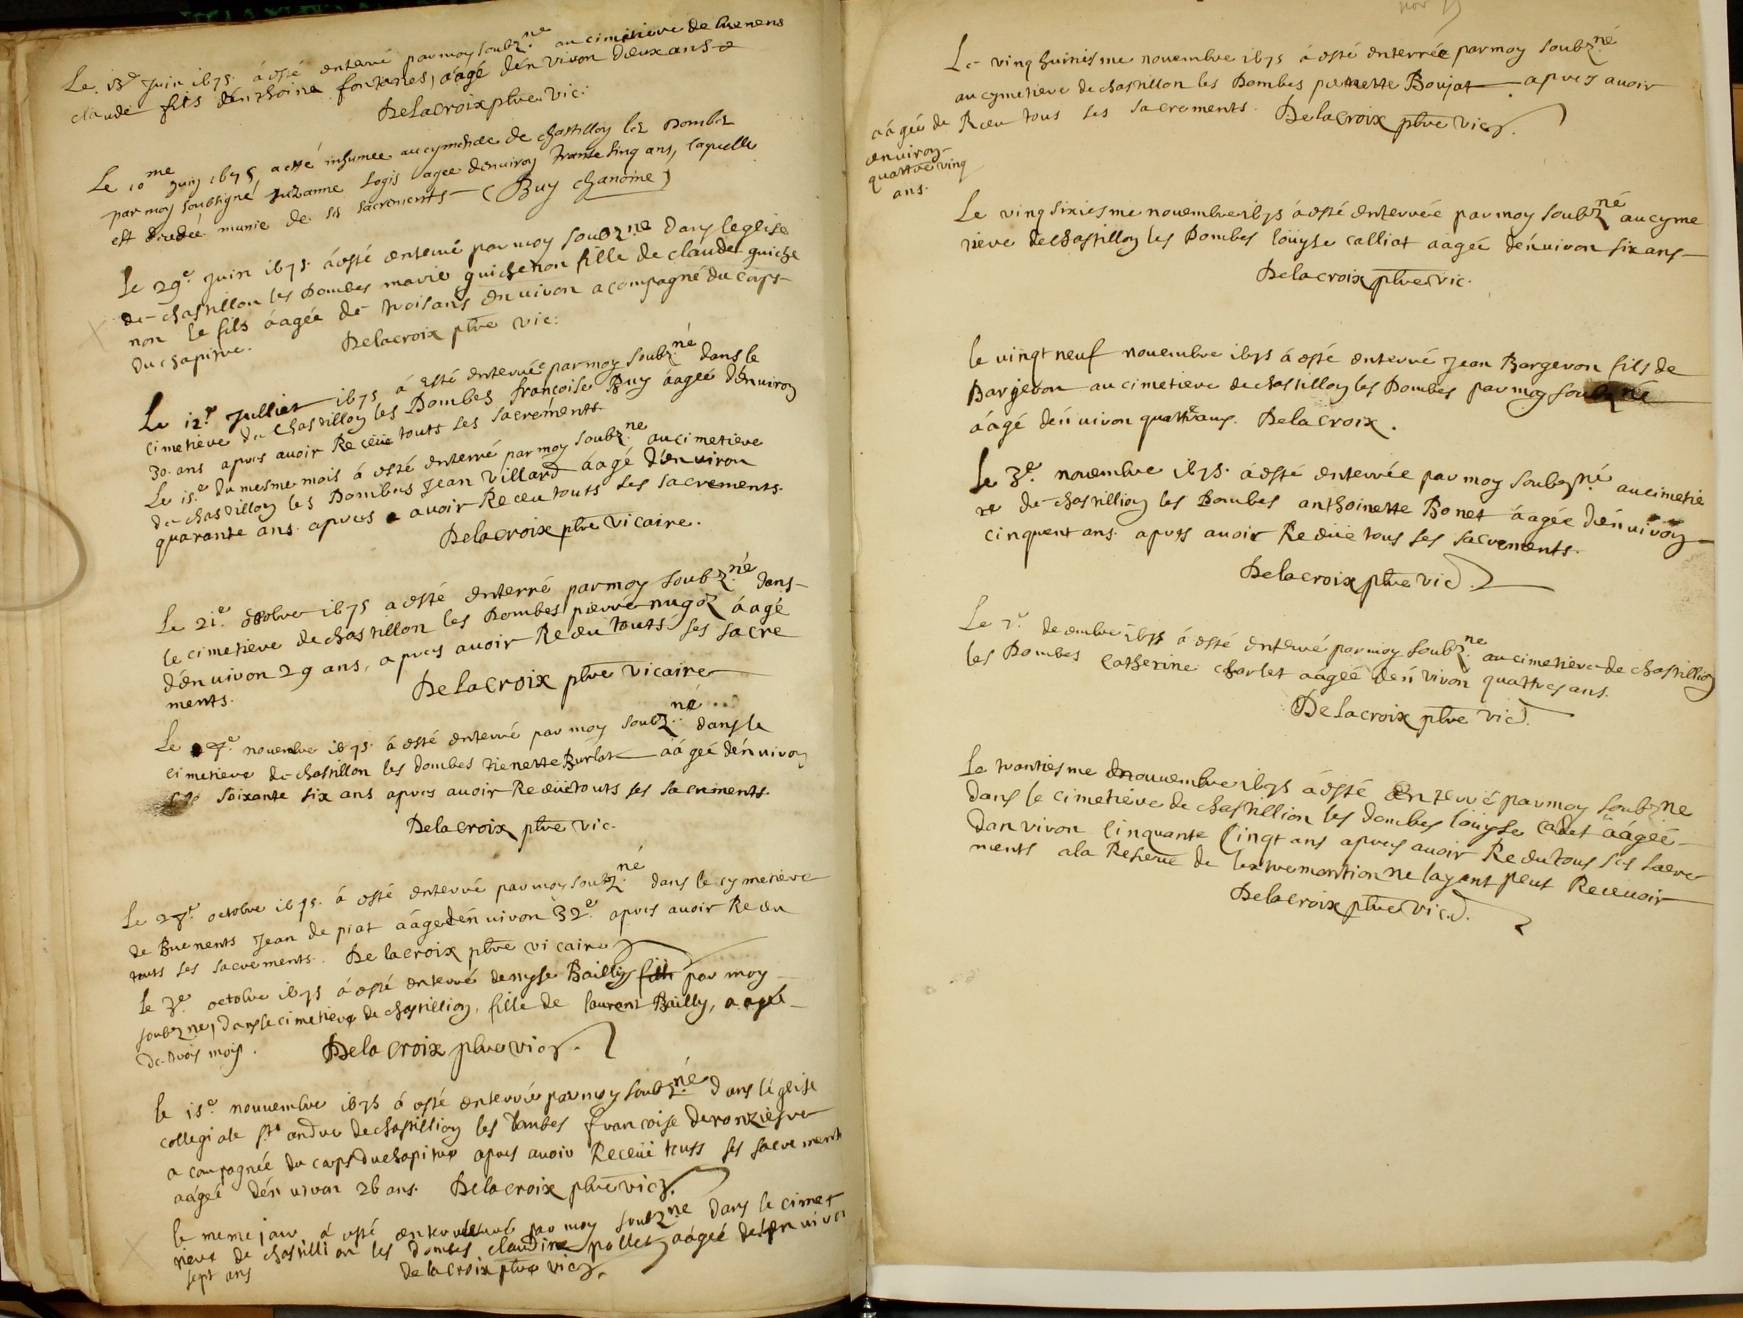 Le 13e Juin 1675 á esté enterré par moy soubzne au cimitiere de buenens
claude fils d'enthoine fontanes, áagé d'én viron deux ans
Delacroix pbre vic:
Le 10me juin 1675, a esté inhumee au cymetiere de chastillon les Dombes
par moy soubsigné suzanne Logis agee denuiron trante sinq ans, laquelle
est décédée munie de ses sacrements (Buy chanoine)
Le 29e Juin 1675 á esté enterré par moy soubzne dans leglise
de chastillon les Dombes marie guichenon fille de claude guiche
non le fils áagée de trois ans enuiron acompagné du corps
du chapitre. Delacroix pbre vic:
Le 12e Julliet 1675 á esté enterrée par moy soubzné dans le
cimetiere de Chastillon les Dombes françoise Buy áagée d'énuiron
30 ans apres auoir Receüe touts ses sacrements.
Le 15e du mesme mois á esté enterré par moy soubzne au cimetiere
de chastillon les Dombes Jean Villard áagé d'énuiron
quarante ans apres auoir Receu touts ses sacrements.
Delacroix pbre vicaire.
Le 21e octobre 1675 a esté enterré par moy soubzné dans
le cimetiere de chastillon les Dombes pierre nugoz áagé
d'énuiron 29 ans, apres auoir Receu touts ses sacre
ments. Delacroix pbre vicaire
Le 7e nouembre 1675 á esté enterré par moy soubzné dans le
cimetiere de chastillon les dombes tienette Burlat áágeé d'énuiron
soixante six ans apres auoir Receüe touts ses sacrements.
Delacroix pbre vic.
Le 27e octobre 1675 á esté enterré par moy soubzné dans le cymetiere
de Buenents Jean de piat áágé d'én uiron 32e apres auoir Receu
touts ses sacrements. Delacroix pbre vicaire
Le 3e octobre 1675 á esté enterré denyse Bailly fille par moy
soubzne, dans le cimetiere de chastillion, fille de laurent Bailly, aagéé
de trois mois. Delacroix pbre vic.
le 15e nouuembre 1675 á esté enterrée par moy soubzné dans l'église
collegiale st andre de chastillion les Dombes francoise deronziere
acompagnée du corps du chapitre apres auoir Receüe touts ses sacrements
aágeé d'én uiron 26 ans. Delacroix pbre vic.
le meme jour á esté enterrée par moy soubzne dans le cimet
tiere de chastillion les dombes claudine pollet aágeé de enuiron
sept ans delacroix pbre vic.
Le vinghuitiesme nouembre 1675 á esté enterrée par moy soubzné
au cymetiere de chastillon les Dombes pernette Boujat apres auoir
aágeé de Receu tous ses sacrements. Delacroix pbre vic.
enuiron
quattre ving
ans.
Le vingsixiesme nouembre 1675 á esté enterrée par moy soubzné au cyme
tiere de chastillon les Dombes loüyse calliat aageé d'énuiron six ans
Delacroix pbre vic.
le vingt neuf nouembre 1675 á esté enterré Jean Bargeron fils de
Bargeron au cimetiere de chastillon les Dombes par moy soubzné
áágé d'énuiron quattre ans. Delacroix.
Le 3e nouembre 1675 á esté enterrée par moy soubzné au cimetie
re de chastillion les Dombes anthoinette Bonet áagée d'énuiron
cinquent ans apres auoir Receüe tous ses sacrements.
Delacroix pbre vic.
Le 7e decembre 1675 á esté enterré par moy soubzne au cimetiere de chastillion
les Dombes Catherine charlet aageé d'én viron quattres ans.
Delacroix pbre vic.
Le trantiesme nouuembre 1675 á esté enterré par moy soubzne
dans le cimetiere de chastillion les dombes loüyse cadet áágeé
danviron cinquante cinqt ans apres auoir Receu tous ses sacre
ments a la Reserue de lextremontion ne layant peut Receuoir
Delacroix pbre vic.